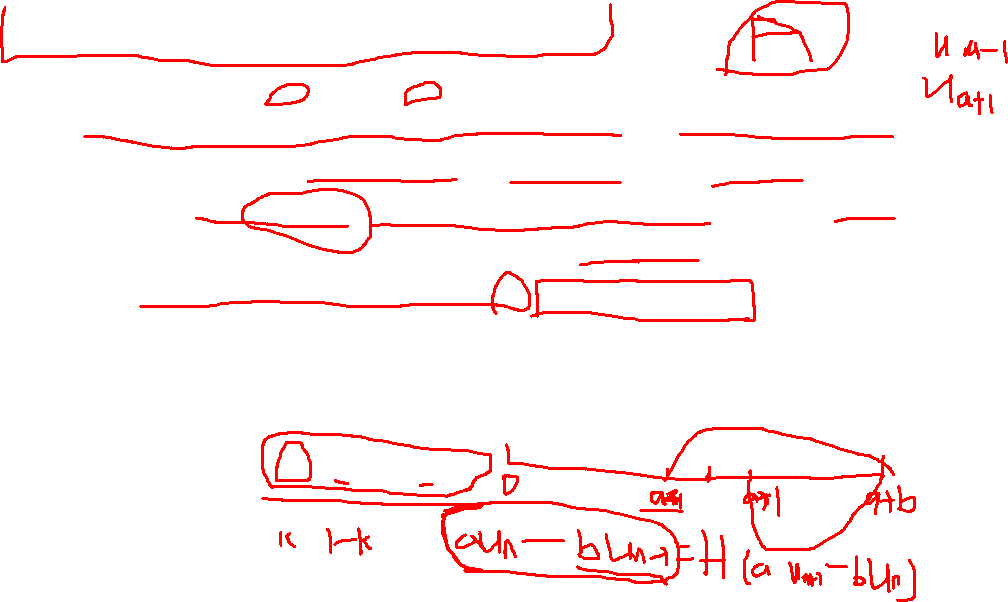 u a-1
u a+1
0 a+1 a+1 a+b
k 1-k
aUn - bUn-1 = H (a Un+1 - bUn)